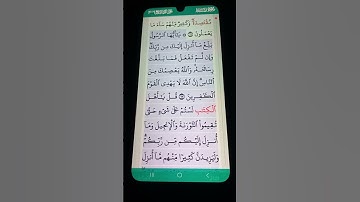 مُّقْتَصِدَةٌ وَكَثِيرٌ مِّنْهُمْ سَآءَ مَا
يَعْمَلُونَ ۝ يَٰٓأَيُّهَا ٱلرَّسُولُ
بَلِّغْ مَآ أُنزِلَ إِلَيْكَ مِن رَّبِّكَ
وَإِن لَّمْ تَفْعَلْ فَمَا بَلَّغْتَ
رِسَالَتَهُۥ وَٱللَّهُ يَعْصِمُكَ مِنَ
ٱلنَّاسِ إِنَّ ٱللَّهَ لَا يَهْدِى ٱلْقَوْمَ
ٱلْكَٰفِرِينَ ۝ قُلْ يَٰٓأَهْلَ
ٱلْكِتَٰبِ لَسْتُمْ عَلَىٰ شَىْءٍ حَتَّىٰ
تُقِيمُوا۟ ٱلتَّوْرَىٰةَ وَٱلْإِنجِيلَ وَمَآ
أُنزِلَ إِلَيْكُم مِّن رَّبِّكُمْ
وَلَيَزِيدَنَّ كَثِيرًا مِّنْهُم مَّآ أُنزِلَ